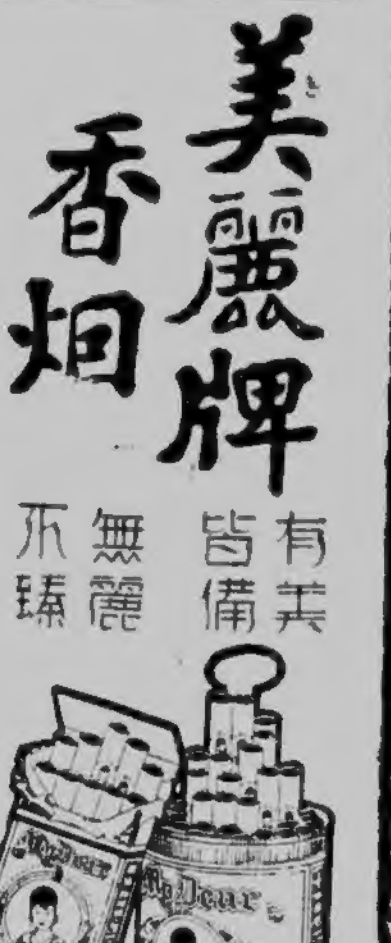 美麗牌
香烟
有美
皆備
無麗
不臻
My Dear
My Dear